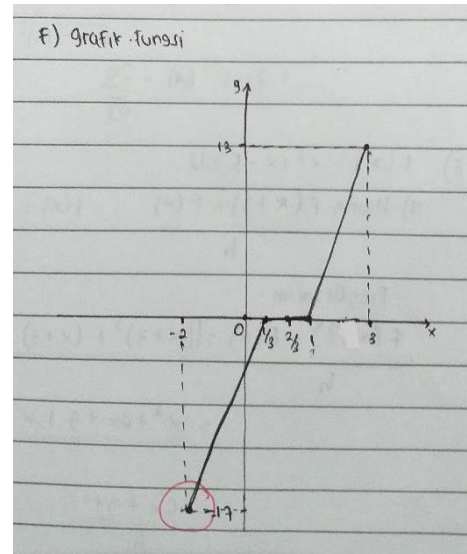 F) grafik fungsi
y
13
-2 0 1/3 2/3 1 3 x
-17